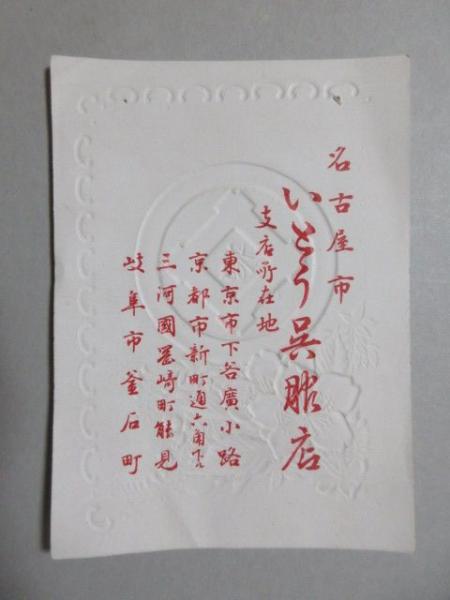 名古屋市
いとう呉服店
支店所在地
東京市下谷廣小路
京都市新町通六角下ル
三河國岡崎町能見
岐阜市釜石町